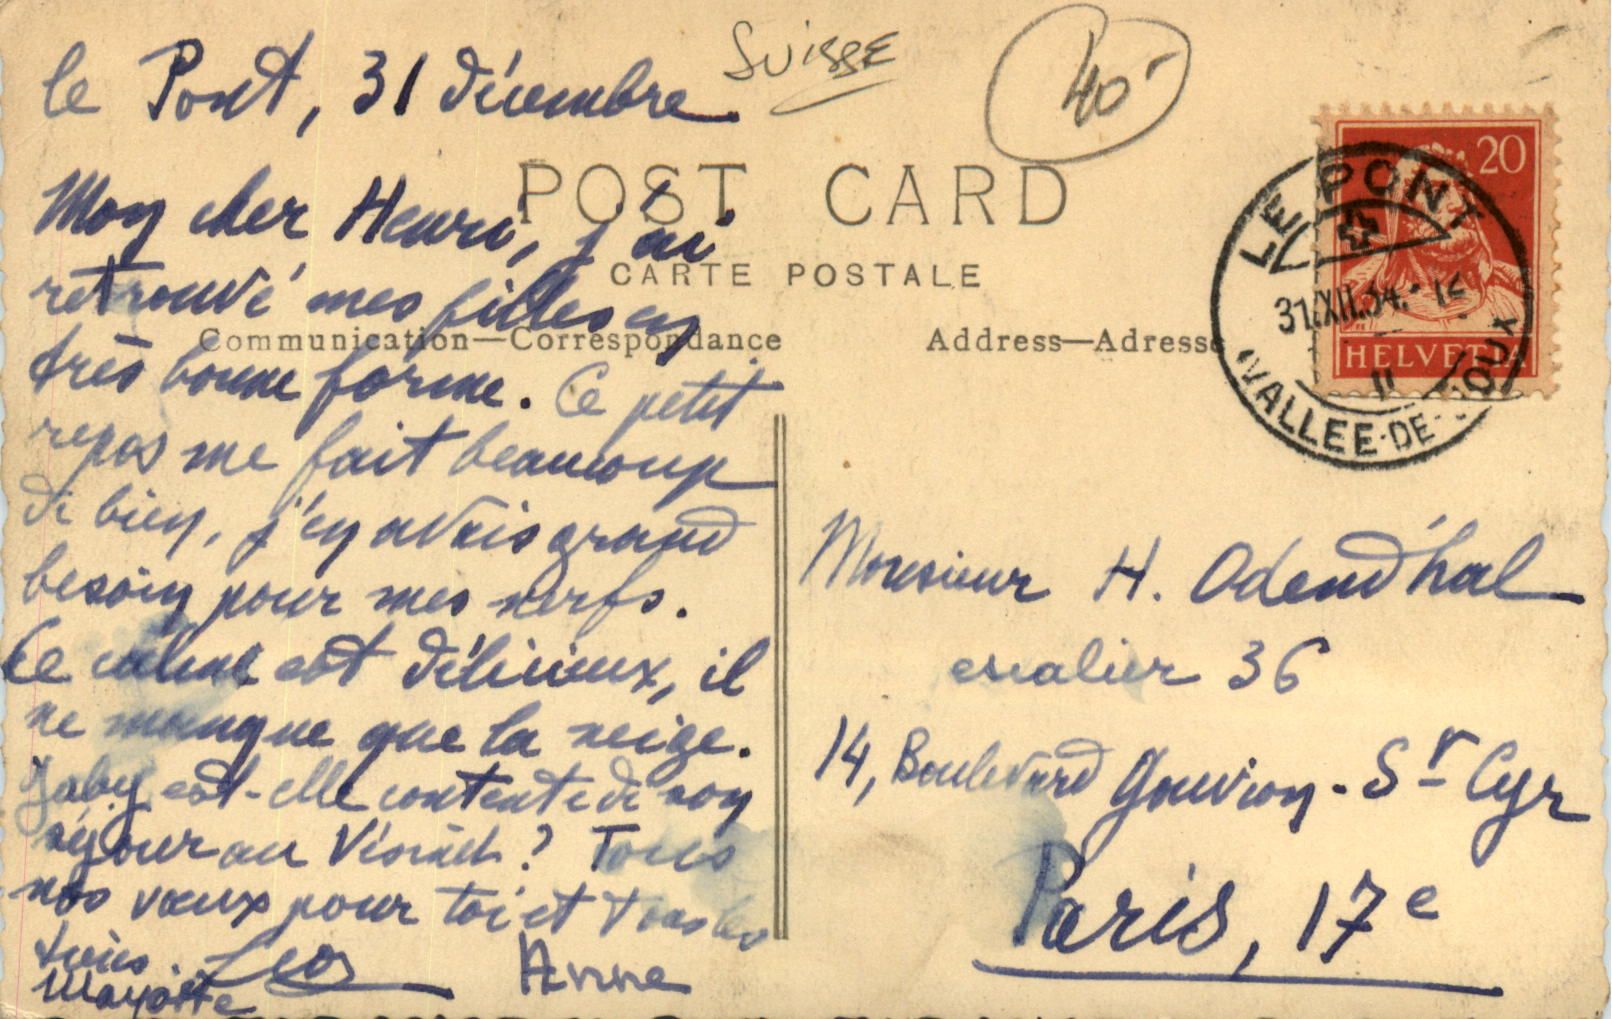 le Pont, 31 décembre
Suisse
40-
POST CARD
CARTE POSTALE
Communication—Correspondance
Address—Adresse
20
HELVETIA
LE PONT
31.XII.34.
(VALLEE-DE-JOUX)
Mon cher Henri, j'ai
retrouvé mes filles en
très bonne forme. Ce petit
repos me fait beaucoup
de bien, j'en avais grand
besoin pour mes nerfs.
Ce calme est délicieux, il
ne manque que la neige.
Gaby est-elle contente de son
séjour au Vésinet? Tous
nos vœux pour toi et tous les
tiens. Leo
Anne
Mayotte
Monsieur H. Odendhal
escalier 36
14, Boulevard Gouvion-Sr Cyr
Paris, 17e